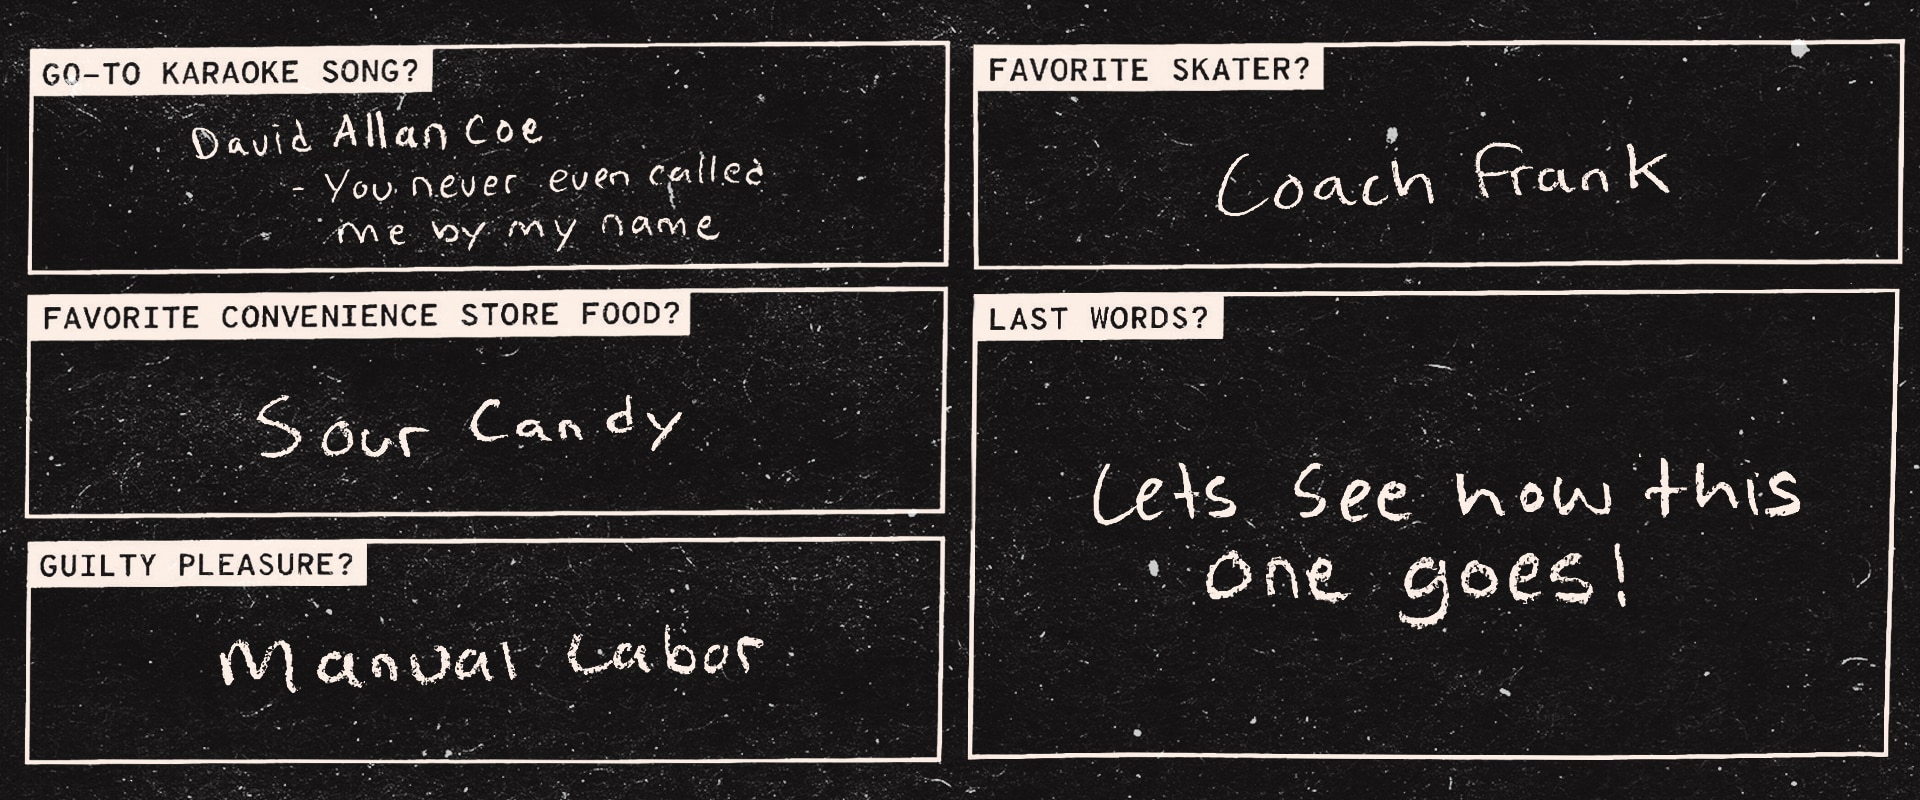 GO-TO KARAOKE SONG?
David Allan Coe
- You never even called
me by my name
FAVORITE CONVENIENCE STORE FOOD?
Sour Candy
GUILTY PLEASURE?
Manual Labor
FAVORITE SKATER?
Coach Frank
LAST WORDS?
Lets see how this
one goes!